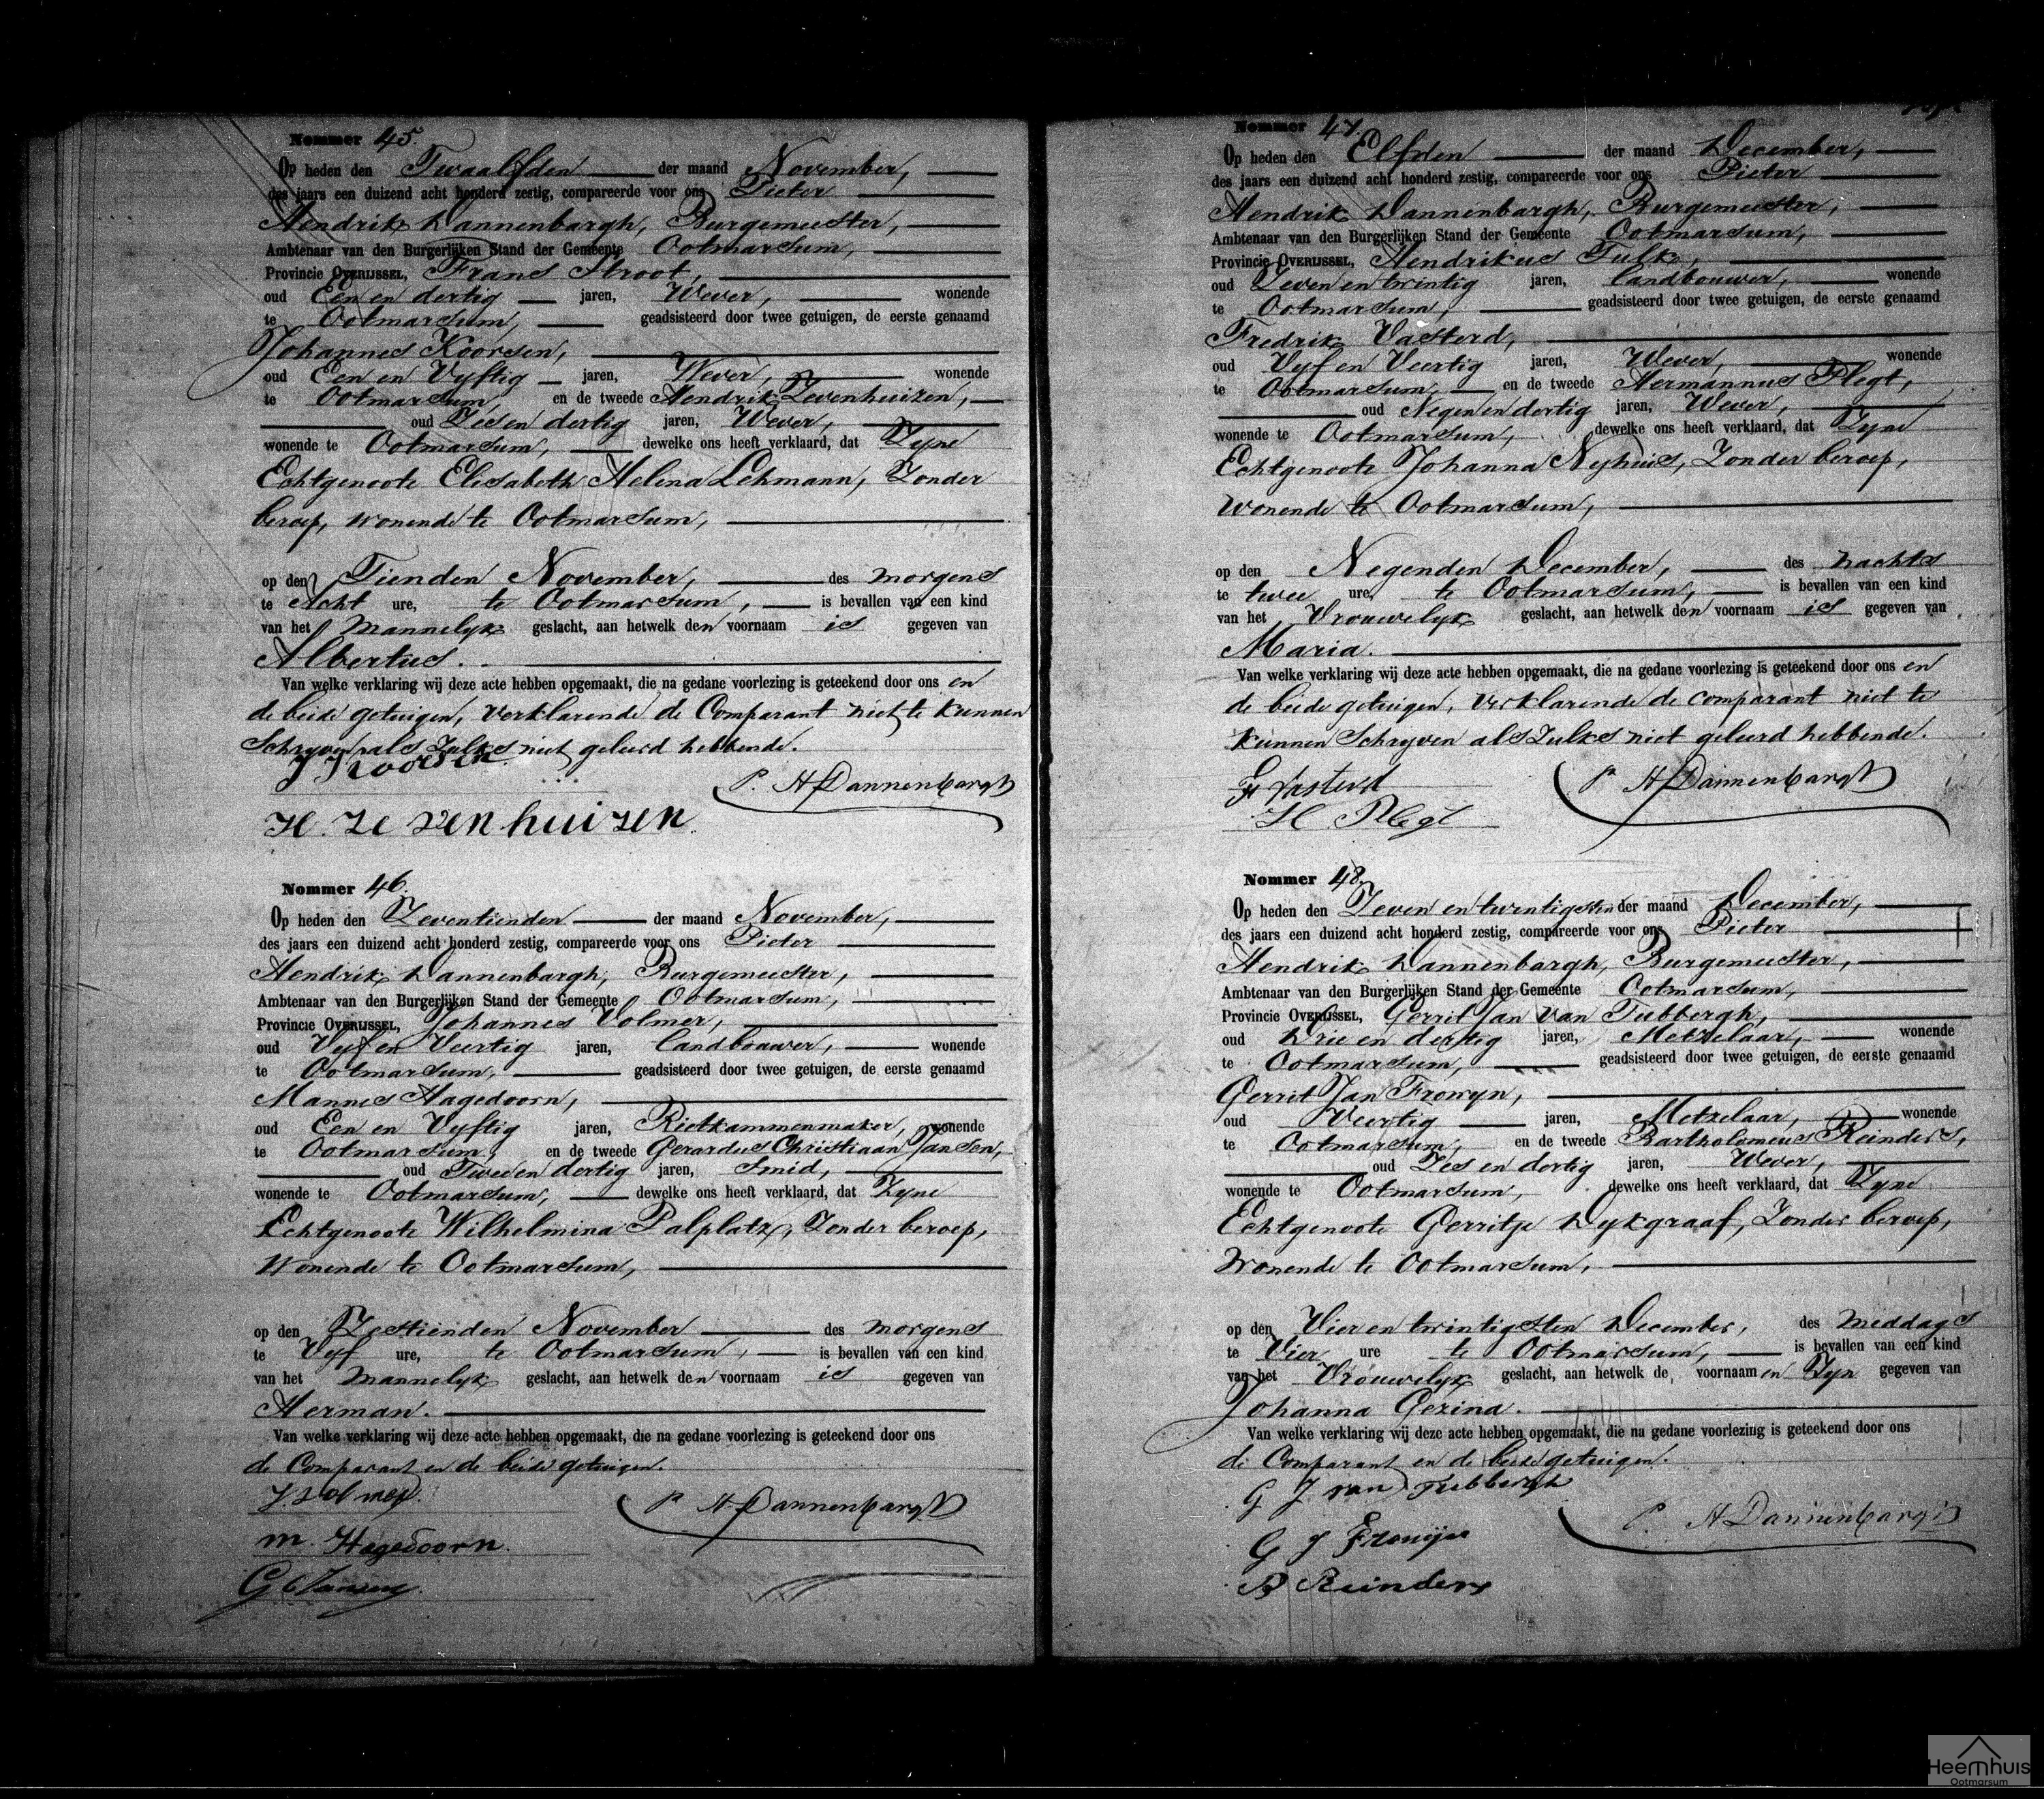 Nommer 45.
Op heden den Twaalfden der maand November,
des jaars een duizend acht honderd zestig, compareerde voor ons Pieter
Hendrik Dannenbargh, Burgemeester,
Ambtenaar van den Burgerlijken Stand der Gemeente Ootmarsum,
Provincie OVERIJSSEL, Frans Stroot,
oud Een en dertig jaren, Wever, wonende
te Ootmarsum, geadsisteerd door twee getuigen, de eerste genaamd
Johannes Koorsen,
oud Een en Vyftig jaren, Wever, wonende
te Ootmarsum, en de tweede Hendrik Zevenhuizen,
oud Zes en dertig jaren, Wever,
wonende te Ootmarsum, dewelke ons heeft verklaard, dat Zyne
Echtgenoote Elisabeth Helena Lehmann, Zonder
beroep, wonende te Ootmarsum,
op den Tienden November, des morgens
te Acht ure, te Ootmarsum, is bevallen van een kind
van het Mannelyk geslacht, aan hetwelk den voornaam is gegeven van
Albertus.
Van welke verklaring wij deze acte hebben opgemaakt, die na gedane voorlezing is geteekend door ons en
de beide getuigen, verklarende de Comparant niet te kunnen
Schryven als Zulks niet geleerd hebbende.
J Koorsen
P. H Dannenbargh
H. Zevenhuizen
Nommer 46.
Op heden den Zeventienden der maand November,
des jaars een duizend acht honderd zestig, compareerde voor ons Pieter
Hendrik Dannenbargh, Burgemeester,
Ambtenaar van den Burgerlijken Stand der Gemeente Ootmarsum,
Provincie OVERIJSSEL, Johannes Volmer,
oud Vyf en Veertig jaren, Landbouwer, wonende
te Ootmarsum, geadsisteerd door twee getuigen, de eerste genaamd
Mannes Hagedoorn,
oud Een en Vyftig jaren, Rietkammenmaker, wonende
te Ootmarsum, en de tweede Gerardus Christiaan Jansen,
oud Twee en dertig jaren, Smid,
wonende te Ootmarsum, dewelke ons heeft verklaard, dat Zyne
Echtgenoote Wilhelmina Palplatz, Zonder beroep,
Wonende te Ootmarsum,
op den Zestienden November des morgens
te Vyf ure, te Ootmarsum, is bevallen van een kind
van het Mannelyk geslacht, aan hetwelk den voornaam is gegeven van
Herman.
Van welke verklaring wij deze acte hebben opgemaakt, die na gedane voorlezing is geteekend door ons
de Comparant en de beide getuigen.
J. Volmer.
P. H. Dannenbargh
M. Hagedoorn.
G C Jansen
Nommer 47.
Op heden den Elfden der maand December,
des jaars een duizend acht honderd zestig, compareerde voor ons Pieter
Hendrik Dannenbargh, Burgemeester,
Ambtenaar van den Burgerlijken Stand der Gemeente Ootmarsum,
Provincie OVERIJSSEL, Hendrikus Tulk,
oud Zeven en twintig jaren, Landbouwer, wonende
te Ootmarsum, geadsisteerd door twee getuigen, de eerste genaamd
Fredrik Vasterd,
oud Vyf en Veertig jaren, Wever, wonende
te Ootmarsum, en de tweede Hermannus Plegt,
oud Negen en dertig jaren, Wever,
wonende te Ootmarsum, dewelke ons heeft verklaard, dat Zyne
Echtgenoote Johanna Nyhuis, Zonder beroep,
Wonende te Ootmarsum,
op den Negenden December, des nachts
te twee ure, te Ootmarsum, is bevallen van een kind
van het Vrouwelyk geslacht, aan hetwelk den voornaam is gegeven van
Maria.
Van welke verklaring wij deze acte hebben opgemaakt, die na gedane voorlezing is geteekend door ons en
de beide getuigen, verklarende de comparant niet te
kunnen Schryven als Zulks niet geleerd hebbende.
F Vasterd
P. H Dannenbargh
H. Plegt
Nommer 48.
Op heden den Zeven en twintigsten der maand December,
des jaars een duizend acht honderd zestig, compareerde voor ons Pieter
Hendrik Dannenbargh, Burgemeester,
Ambtenaar van den Burgerlijken Stand der Gemeente Ootmarsum,
Provincie OVERIJSSEL, Gerrit Jan van Tubbergh,
oud Drie en dertig jaren, Metzelaar, wonende
te Ootmarsum, geadsisteerd door twee getuigen, de eerste genaamd
Gerrit Jan Frowyn,
oud Veertig jaren, Metzelaar, wonende
te Ootmarsum, en de tweede Bartholomeus Reinders,
oud Zes en dertig jaren, Wever,
wonende te Ootmarsum, dewelke ons heeft verklaard, dat Zyne
Echtgenoote Gerritje Dykgraaf, Zonder beroep,
Wonende te Ootmarsum,
op den Vier en twintigsten December, des middags
te Vier ure te Ootmarsum, is bevallen van een kind
van het Vrouwelyk geslacht, aan hetwelk de voornaamen Zyn gegeven van
Johanna Gezina.
Van welke verklaring wij deze acte hebben opgemaakt, die na gedane voorlezing is geteekend door ons
de Comparant en de beide getuigen.
G J van Tubbergh
P. H Dannenbargh
G J Frowijn
B Reinders
Heemhuis
Ootmarsum